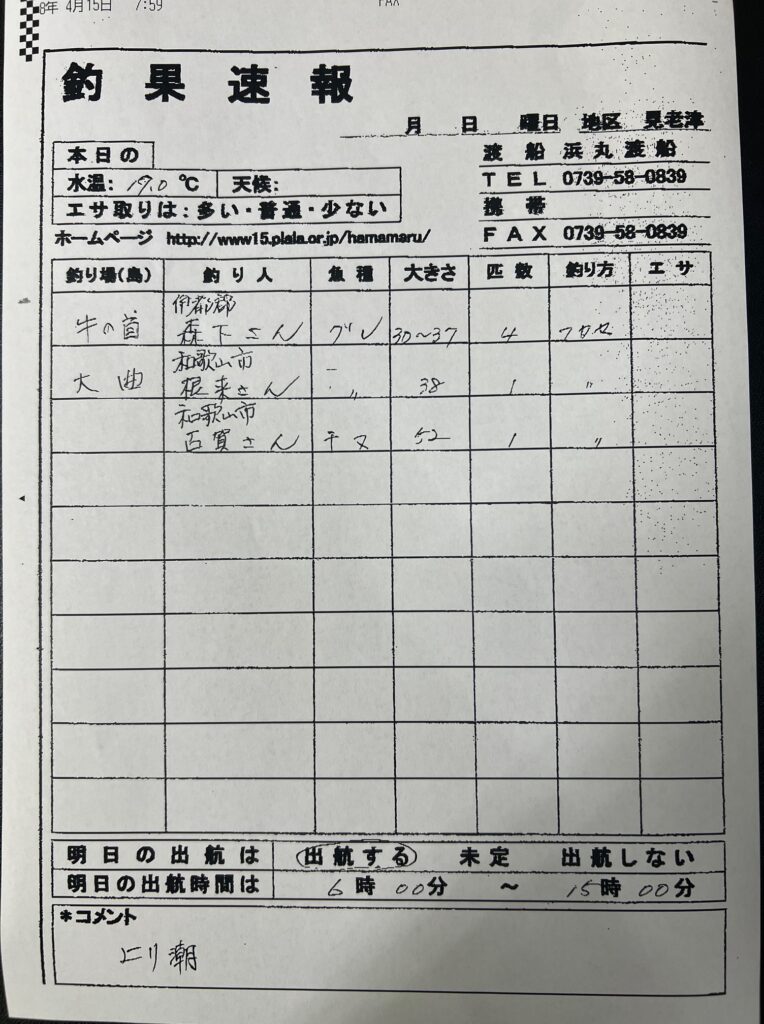 8年 4月15日 7:59 FAX
釣果速報
月 日 曜日 地区 見老津
本日の
水温: 19.0 ℃ 天候:
エサ取りは:多い・普通・少ない
渡船 浜丸渡船
TEL 0739-58-0839
携帯
FAX 0739-58-0839
ホームページ http://www15.plala.or.jp/hamamaru/
釣り場(島) 釣り人 魚種 大きさ 匹数 釣り方 エサ
伊都郡
牛の首 森下さん グレ 30~37 4 フカセ
和歌山市
大曲 根来さん 〃 38 1 〃
和歌山市
古賀さん チヌ 52 1 〃
明日の出航は 出航する 未定 出航しない
明日の出航時間は 6時00分 ~ 15時00分
*コメント
上り潮